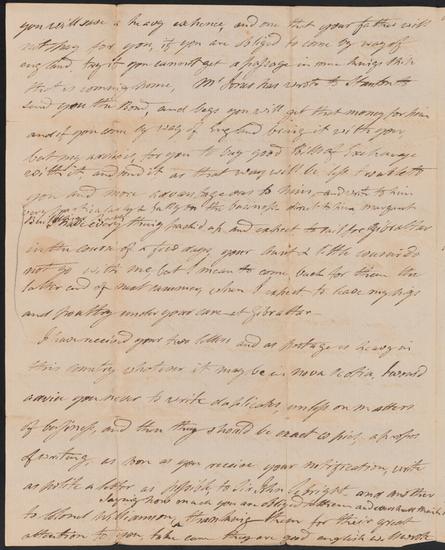 you will save a heavy expence, and one that your father will
not pay for you, if you are obliged to come by way of
England. try if you cannot get a passage in some Kings Ship
that is coming home, Mr Jones has wrote to Stanton to
send you the Bond, and begs you will get that money for him
and if you come by way of England bring it with you,
but my advice, for you to buy good Bills of Exchange
with it, and send it as that way will be less trouble to
you and more advantageous to him, and write to him
very
have every thing packed up and expect to sail for Gibraltar
in the course of a few days, your Aunt & little cousins do
not go with me, but I mean to come back for them the
latter end of next summer, when I expect to leave my pigs
and poultry under your care at Gibraltar.
I have received your two letters and as postage is heavy in
this country whatever it may be in Nova Scotia, I would
advise you never to write duplicates, unless on matters
of business, and then they should be exact copies, apropos
of writing, as soon as you receive your notification, write
as polite a letter as possible to Sir John Wright and another
saying how much you are obliged to them
to Colonel Williamson, thanking them for their great
attention to you, take care they are good english as